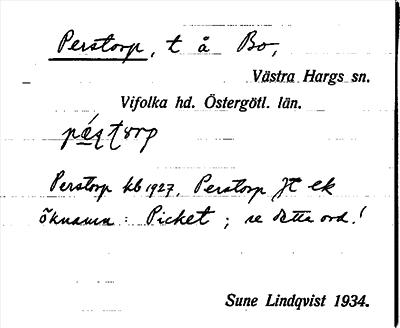 Perstorp, t å Bo,
Västra Hargs sn.
Vifolka hd. Östergötl. län.
Perstorp kb 1927, Perstorp Jt ek
öknamn: Picket; se detta ord!
Sune Lindqvist 1934.